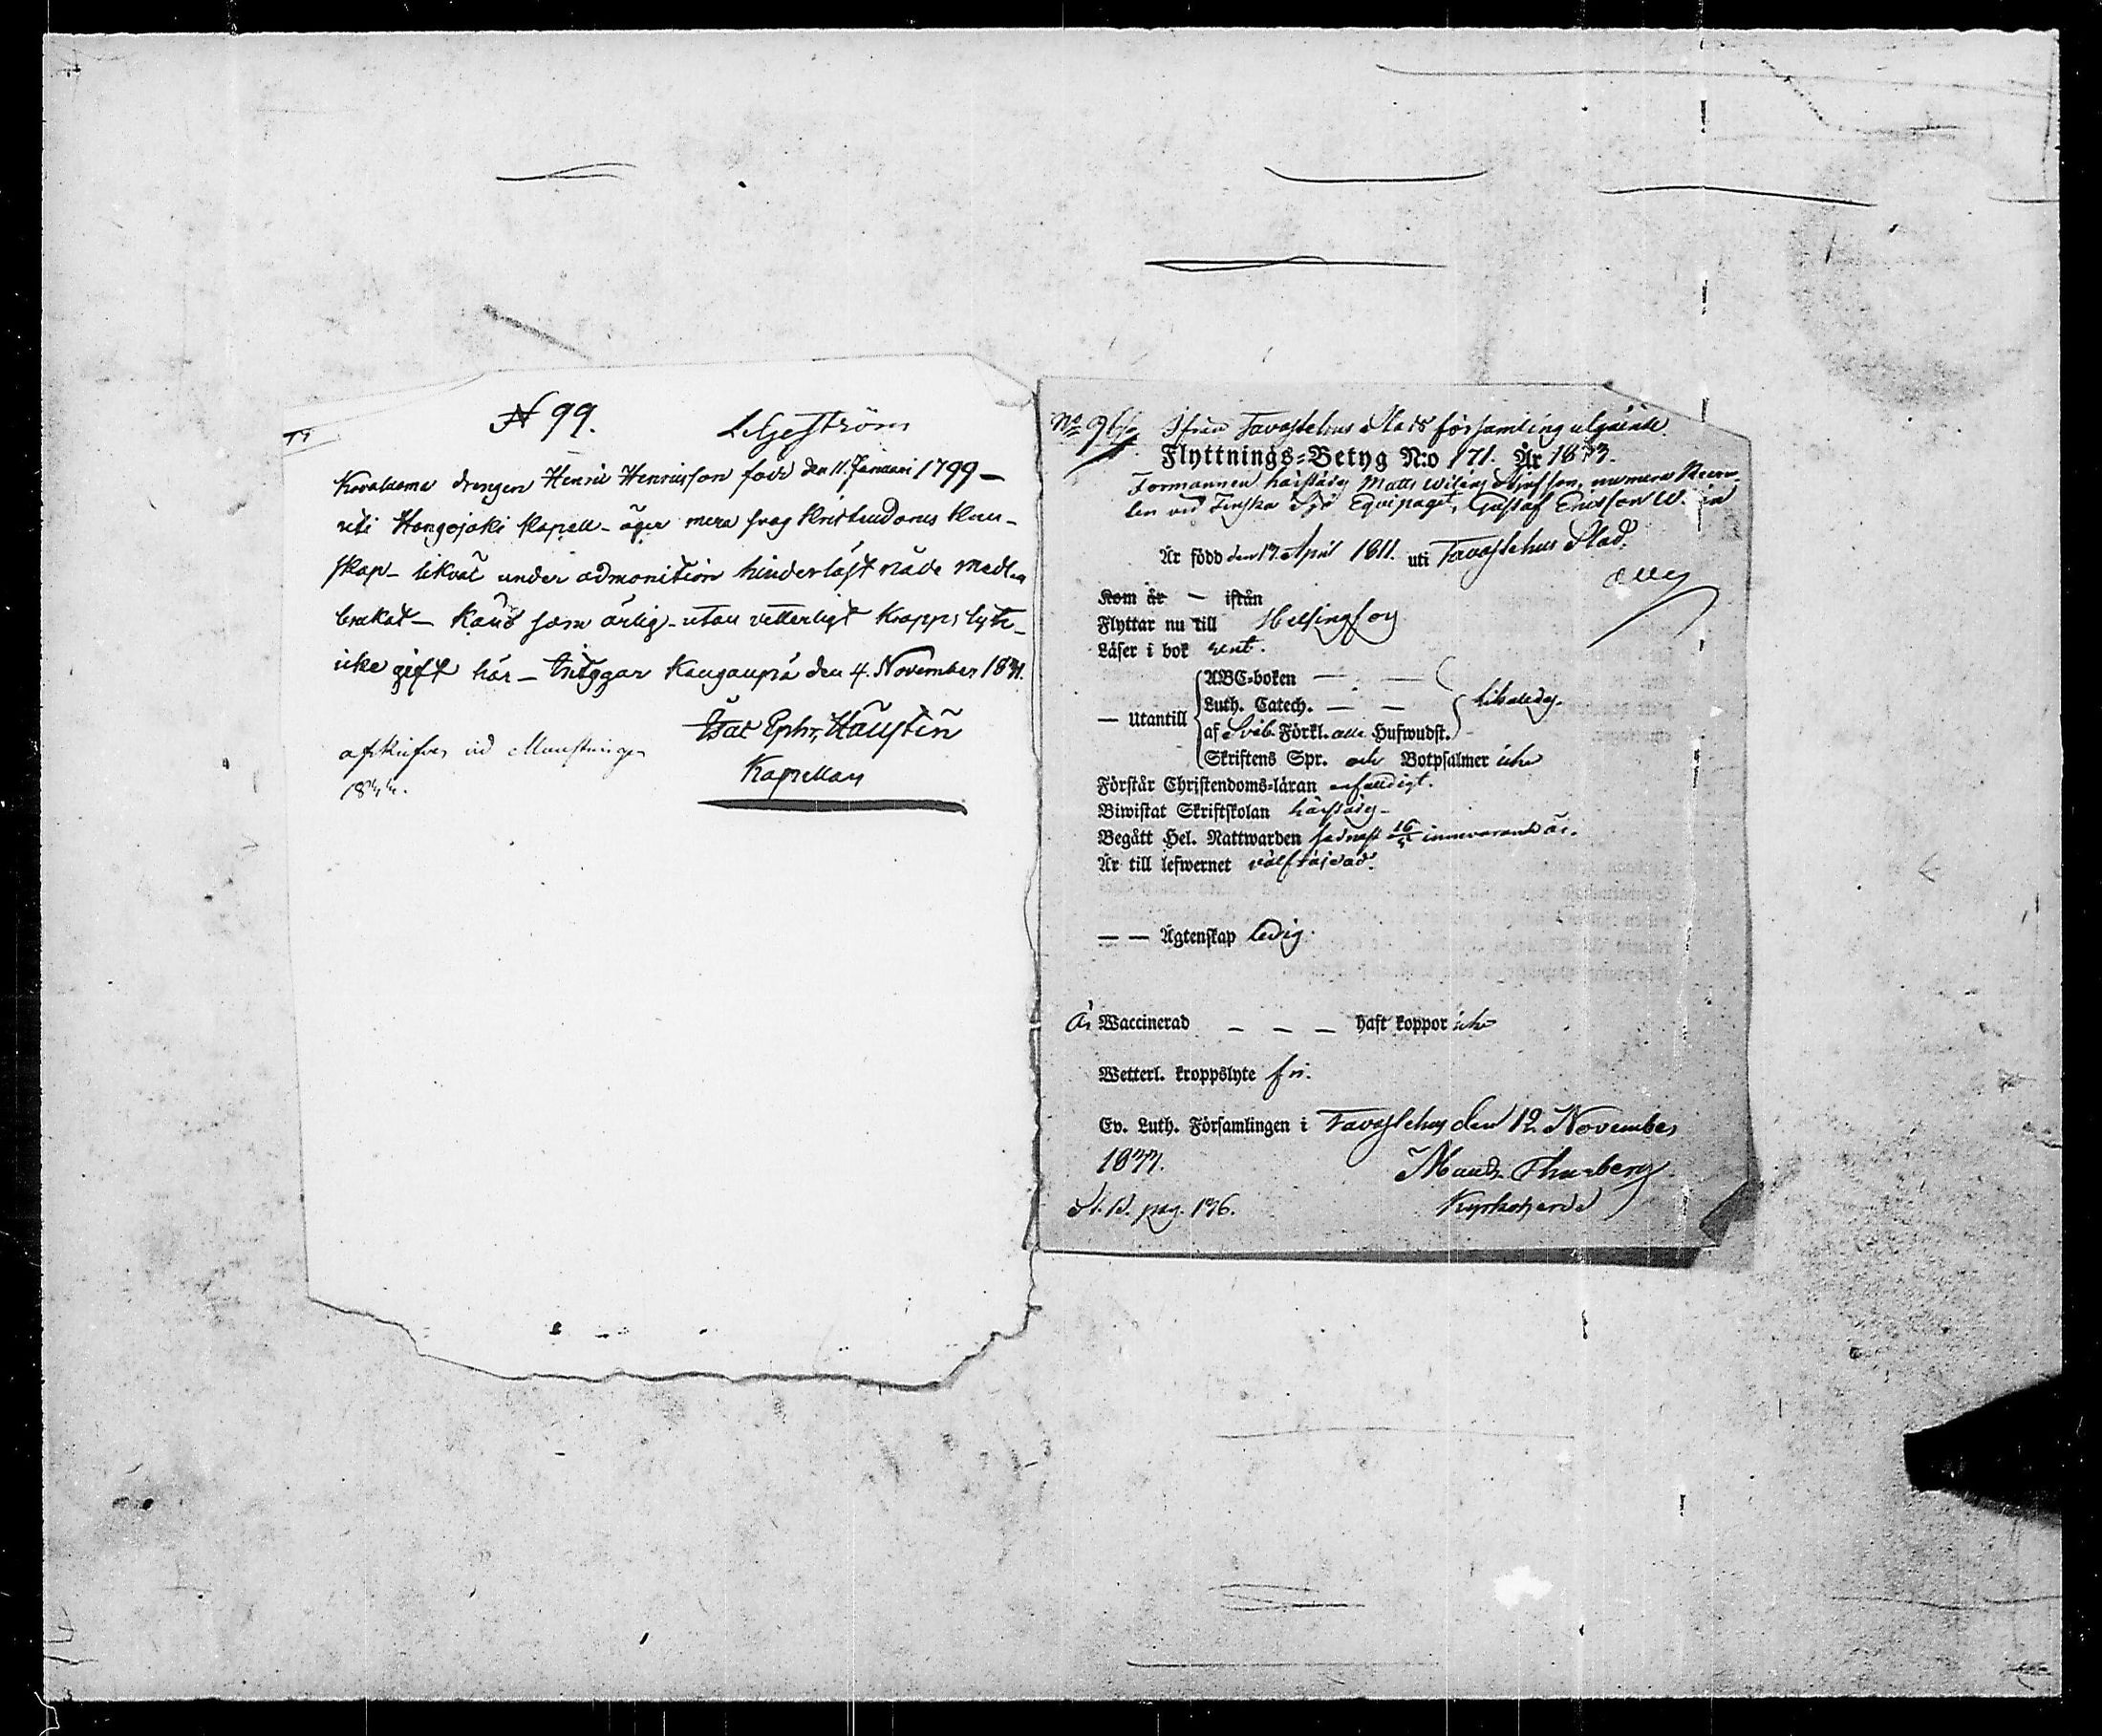 N 99.
Liljeström
drengen Henric Henricsson född den 11. Januari 1799 —
uti Hongojoki Kapell - äger mera svag Kristendoms kun-
skap - likväl under admonition hinderlöst nåde medlen
brukat - känd som ärlig - utan vetterligt kropps lyte -
icke gift här - den 4. November 1831.
Isac Ephr.
Kapellan
afskrifves vid
No 96
Ifrån Tavastehus Stads församling utgående
Flyttnings-Betyg N:o 171. År 1833.
Formannen härstädes Matts son, numera
ten vid Finska Sjö Equipaget, Gustaf Ericsson
Är född den 17. April 1811. uti Tavastehus Stad.
Kom år — ifrån
Flyttar nu till Helsingfors
Läser i bok rent.
— Utantill
ABC-boken — —
Luth. Catech. — — likaledes.
af Sveb. Förkl. alla Hufwudst.
Skriftens Spr. och Botpsalmer icke
Förstår Christendoms-läran enfaldigt.
Biwistat Skriftskolan härstädes
Begått Hel. Nattwarden sednast innevarande år.
Är till lefwernet välfräjdad.
— — Ägtenskap ledig.
Är Waccinerad — — — haft koppor icke
Wetterl. kroppslyte fri.
Ev. Luth. Församlingen i Tavastehus den 12 November
1833.
pag. 136.
Kyrkoherde